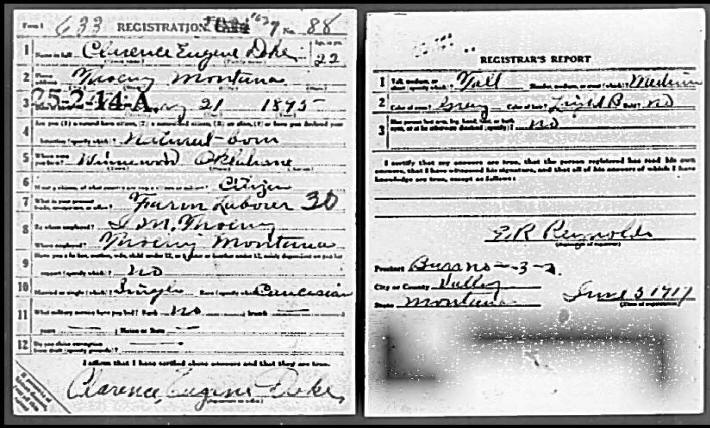 Form 1 633 REGISTRATION CARD No. 88
1 Name in full Clarence Eugene Doke Age, in yrs. 22
2 Home address Thoeny Montana
25-2-14-A
3 21 1895
4 Are you (1) a natural-born citizen, (2) a naturalized citizen, (3) an alien, (4) or have you declared your
intention (specify which)? Natural-born
5 Where were you born? Winnewood Oklahoma
6 If not a citizen, of what country are you a citizen or subject? Citizen
7 What is your present trade, occupation, or office? Farm Laborer 30
8 By whom employed? I.M. Thoeny
Where employed? Thoeny Montana
9 Have you a father, mother, wife, child under 12, or a sister or brother under 12, solely dependent on you for
support (specify which)? No
10 Married or single (which)? Single Race (specify which)? Caucasian
11 What military service have you had? Rank No branch
years Nation or State
12 Do you claim exemption from draft (specify grounds)?
I affirm that I have verified above answers and that they are true.
Clarence Eugene Doke
REGISTRAR'S REPORT
1 Tall, medium, or short (specify which)? Tall Slender, medium, or stout (which)? Medium
2 Color of eyes? Gray Color of hair? Light B Bald? No
3 Has person lost arm, leg, hand, foot, or both eyes, or is he otherwise disabled (specify)? No
I certify that my answers are true, that the person registered has read his own
answers, that I have witnessed his signature, and that all of his answers of which I have
knowledge are true, except as follows:
E.R Reynolds
(Signature of registrar)
Precinct 3-2
City or County Valley
State Montana June 5 1917
(Date of registration)